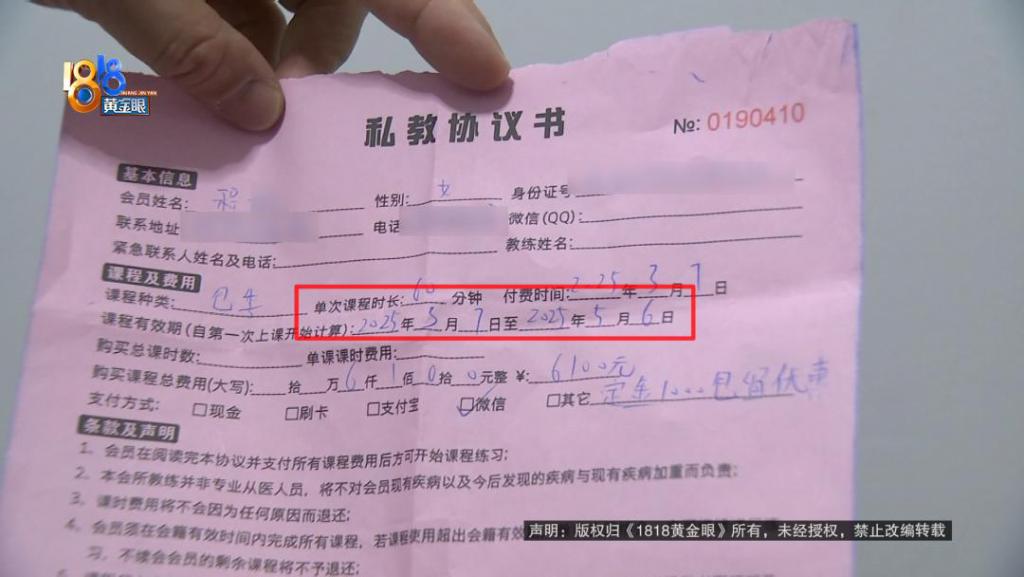 1818
黄金眼
私教协议书
№: 0190410
基本信息
会员姓名: 性别: 女 身份证号
联系地址 电话 微信(QQ):
紧急联系人姓名及电话: 教练姓名:
课程及费用
课程种类: 包车 单次课程时长: 60 分钟 付费时间: 2025年3月7日
课程有效期(自第一次上课开始计算): 2025年3月7日至2025年5月6日
购买总课时数: 单课课时费用:
购买课程总费用(大写): 拾 万6仟1佰0拾0元整 ¥: 6100元
支付方式: □现金 □刷卡 □支付宝 ☑微信 □其它 定金1000包留优惠
条款及声明
1、会员在阅读完本协议并支付所有课程费用后方可开始课程练习;
2、本会所教练并非专业从医人员,将不对会员现有疾病以及今后发现的疾病与现有疾病加重而负责;
3、课时费用将不会因为任何原因而退还;
4、会员须在会籍有效时间内完成所有课程,若课程使用超出会籍有效
习,不续会会员的剩余课程将不予退还;
声明:版权归《1818黄金眼》所有,未经授权,禁止改编转载